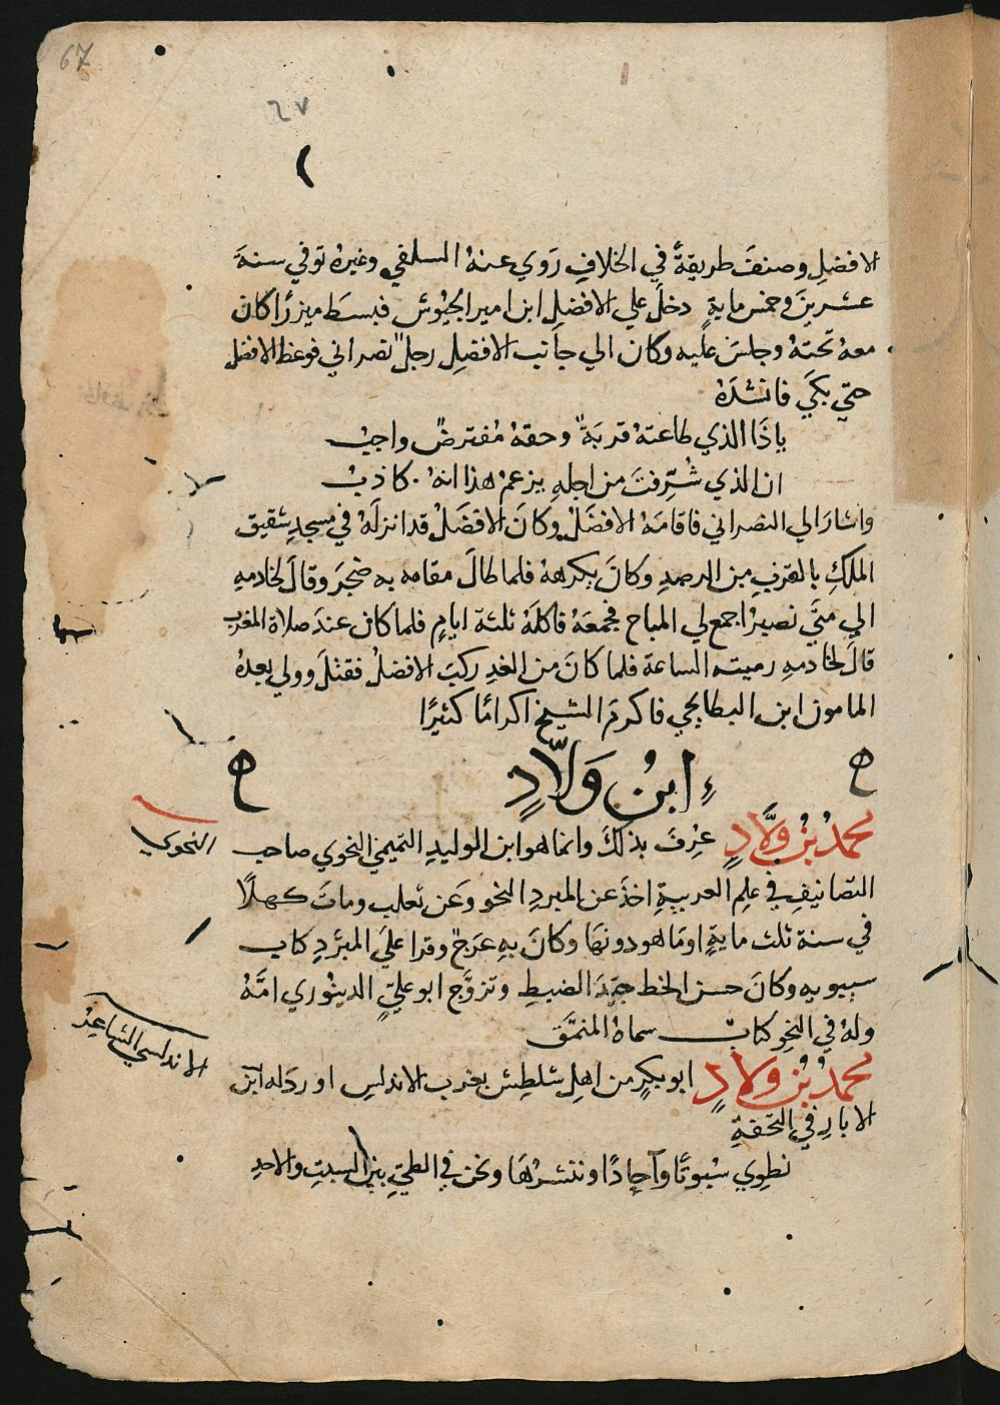 67
٦٧
الافضلِ وصنفَ طريقةً في الخلافِ رَوي عنهُ السلفي وغيرهُ توفي سنةَ
عشرينَ وخمس مايةٍ دخلَ علي الافضلِ ابن امير الجيُوش فبسَط ميزرًا كان
معهُ تحتهُ وجلسَ عليه وكان الي جانب الافضِل رجلٌ نصراني فوعظ الافضل
حتي بكَي فانشدَهُ
ياذَا الذي طاعتهُ قربَةٌ وحقهُ مُفترضٌ واجبُ
ان الذي شُرِّفتَ من اجلهِ يزعمُ هذا انهُ كاذبُ
واشارَ الي النصراني فاقامَهُ الافضَلُ وكانَ الافضَلُ قد انزلَهُ في مسجدِ شقيق
الملكِ بالقربِ من الرصدِ وكانَ يكرههُ فلما طالَ مقامه به ضجرَ وقالَ لخادمهِ
الي متَي نصبرُ اجمع لي المباح فجمعَهُ فاكلَهُ ثلثة ايامٍ فلما كان عندَ صلاة المغرب
قالَ لخادمهِ رميته الساعة فلما كانَ من الغدِ ركبَ الافضلُ فقتلَ وولي بعدهُ
المامون ابن البطايحي فاكرمَ الشيخ اكرامًا كثيرًا
ابنُ وَلاَّدٍ
محمدُ بُن ولاَّدٍ عرِفَ بذلكَ وانما هو ابن الوليدِ التميمي النحوي صاحب
النحوي
التصانيفِ في علِم العربيةِ اخذَ عن المبردِ النحو وعَن ثعلب وماتَ كهلًا
في سنة ثلث مايةٍ اومَا هو دونهَا وكانَ بهِ عرَجٌ وقرا عليَ المبرَّدِ كتاب
سيبويهِ وكانَ حسن الخط جيِّدَ الضبطِ وتزوَّج ابو عليٍّ الدينوري امَّهُ
ولهُ في النحوِ كتابٌ سماهُ المنمَّق
الاندلسي الشاعِرُ
محمدُ بُن ولاَّدٍ ابو بكرٍ من اهلِ شلطِيش بغرب الاندلسِ اورَد له ابن
الابارِ في التحفةِ
نطوي سُبوتًا وآحادًا وننشرُهَا ونحن في الطيّ بينَ السبتِ والاحدِ